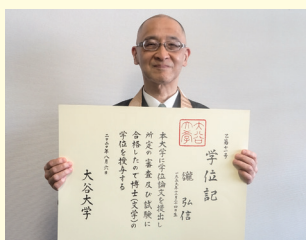 学位記
瀧 弘信
本大学に学位論文を提出し
所定の審査及び試験に
合格したので博士(文学)の
学位を授与する
大谷大学